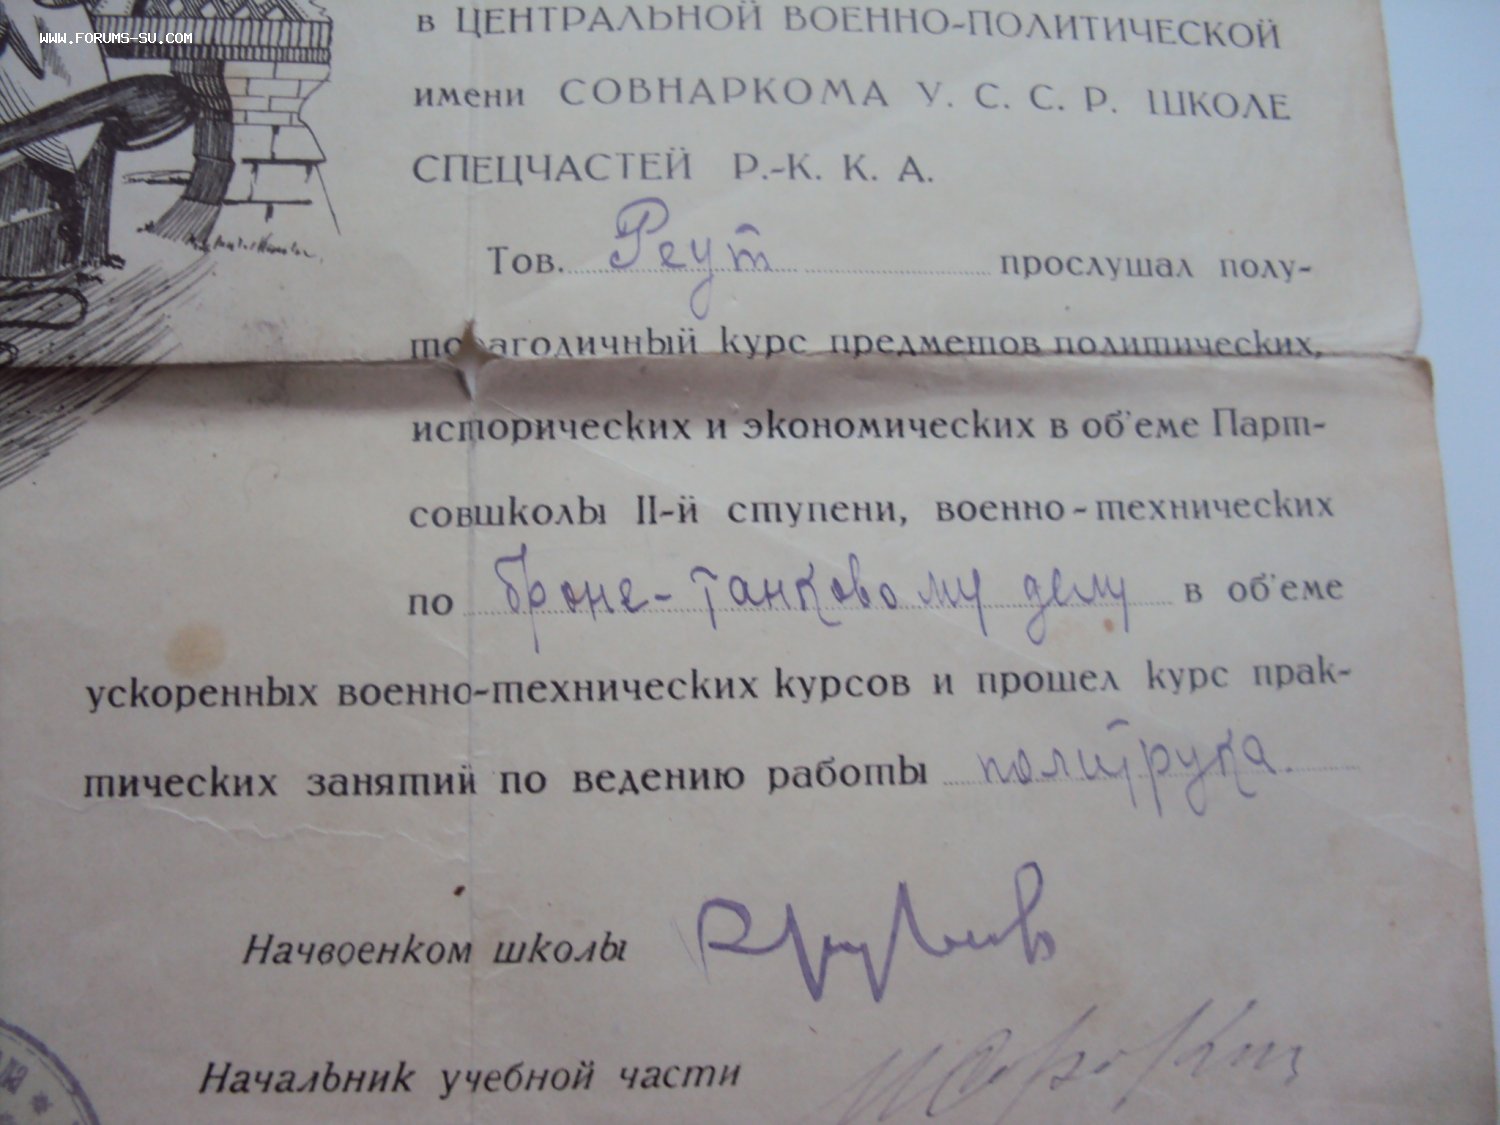 WWW.FORUMS-SU.COM
в ЦЕНТРАЛЬНОЙ ВОЕННО-ПОЛИТИЧЕСКОЙ
имени СОВНАРКОМА У. С. С. Р. ШКОЛЕ
СПЕЦЧАСТЕЙ Р.-К. К. А.
Тов. Реут прослушал полу-
торагодичный курс предметов политических,
исторических и экономических в об'еме Парт-
совшколы II-й ступени, военно-технических
по броне-танковому делу в об'еме
ускоренных военно-технических курсов и прошел курс прак-
тических занятий по ведению работы политрука.
Начвоенком школы
Начальник учебной части